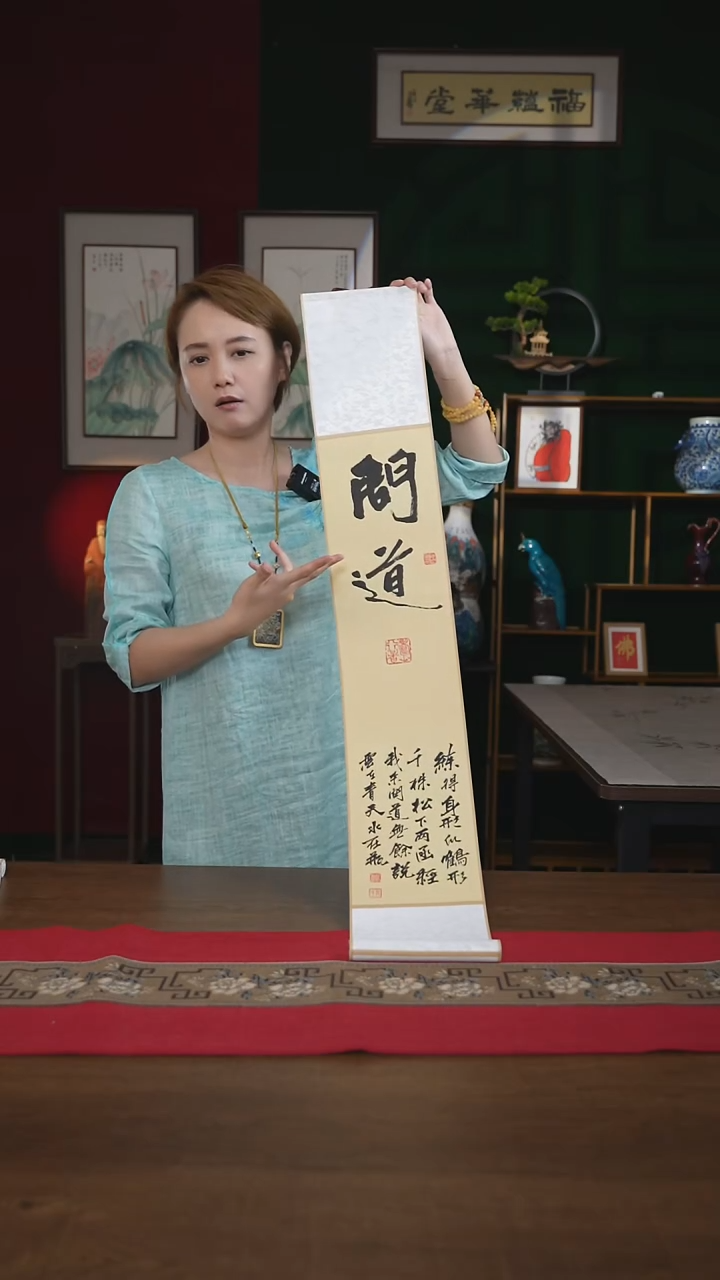 福韞華堂
問道
練得身形似鶴形
千株松下兩函經
我來問道無餘說
雲在青天水在瓶
佛